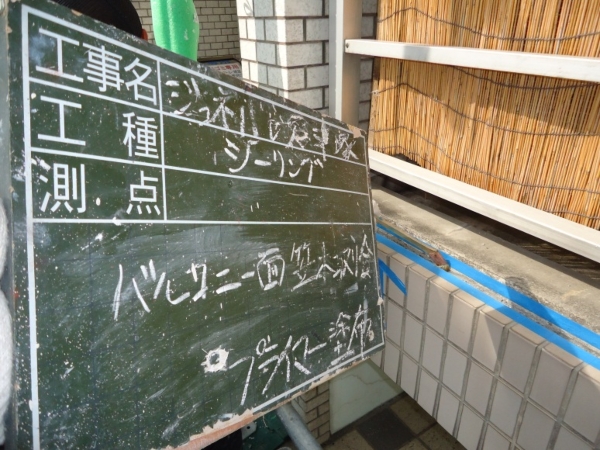 工事名 ジュネル
工種 シーリング
測点
バルコニー面 笠木
プライマー塗布